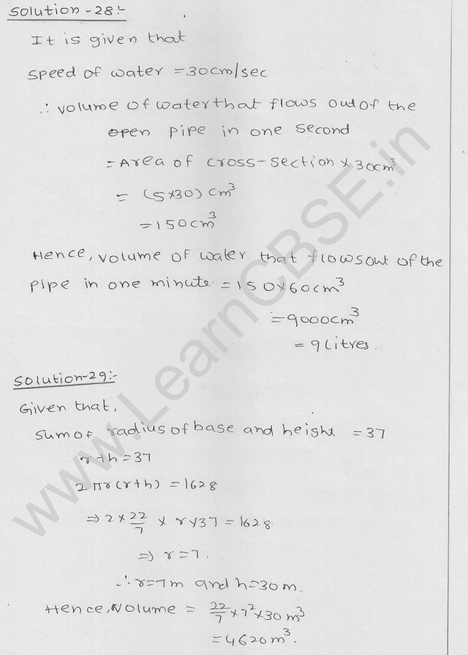 Solution-28:-
It is given that
Speed of water = 30cm/sec
∴ volume of water that flows out of the
open pipe in one second
= Area of cross-section × 30cm³
= (5×30) cm³
= 150cm³
Hence, volume of water that flows out of the
pipe in one minute = 150×60cm³
= 9000cm³
= 9litres.
Solution-29:-
Given that,
Sum of radius of base and height = 37
r+h = 37
2πr(r+h) = 1628
⇒ 2 × 22/7 × r×37 = 1628
⇒ r = 7.
∴ r=7m and h=30m.
Hence, Volume = 22/7 × 7² × 30 m³
= 4620m³.
www.LearnCBSE.in